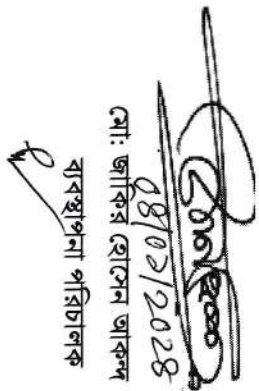 ০৪/০২/২০২৪
মো: জাকির হোসেন আকন্দ
ব্যবস্থাপনা পরিচালক